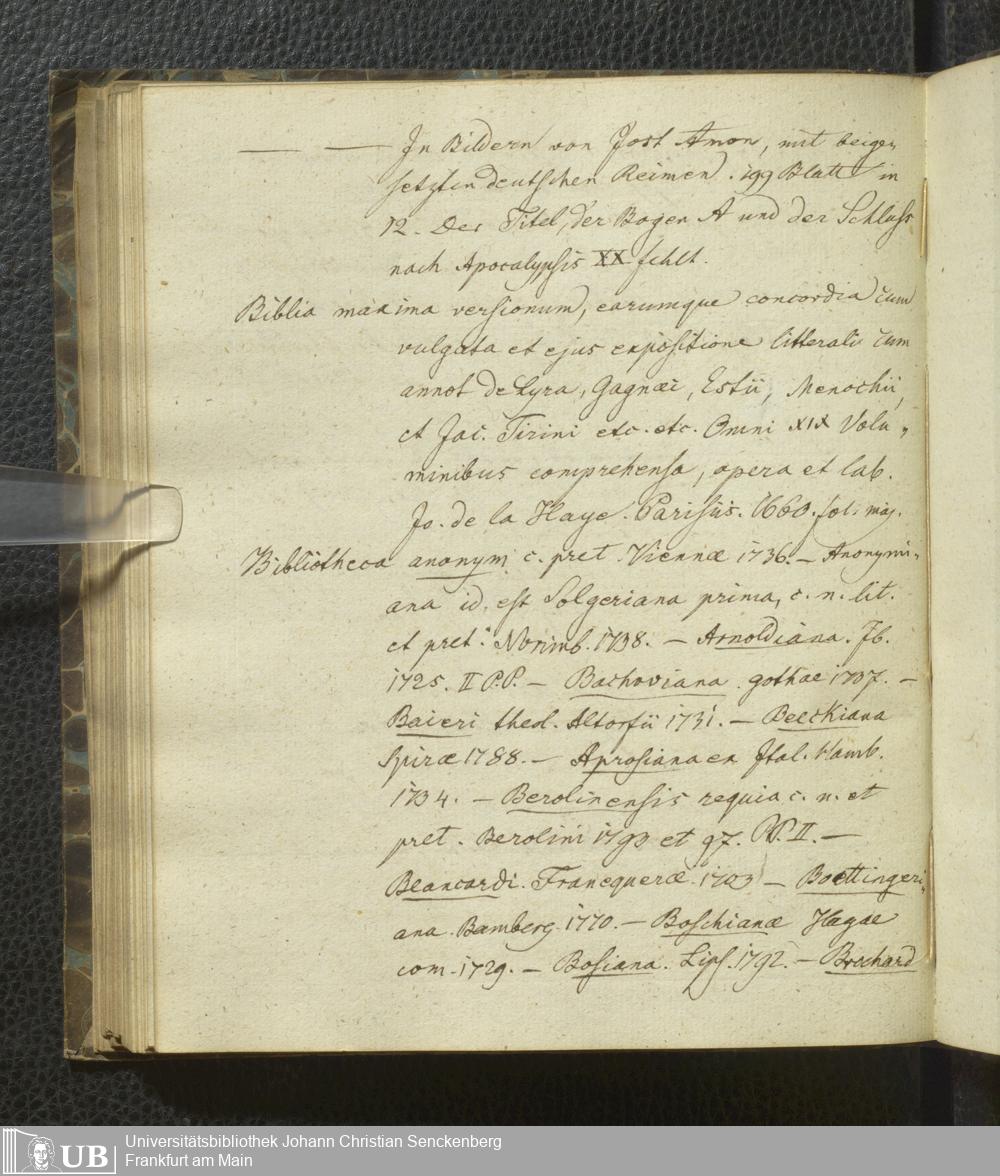 — — In Bildern von Jost Amon, mit beige„
setzten deutschen Reimen. 199 Blatt in
12. Der Titel, der Bogen A und der Schluss
nach Apocalypsis XX fehlt.
Biblia maxima versionum, earumque concordia cum
vulgata et ejus expositione litterali cum
annot de Lyra, Gagnæi, Estii, Menochii,
et Jac. Tirini etc. etc. Omni XIX Volu„
minibus comprehensa, opera et lab.
Jo. de la Haye. Parisiis. 1660. fol. maj.
Bibliotheca anonym c. pret. Viennæ 1736. — Anonymi„
ana id. est Solgeriana prima, c. n. lit.
et pret. Norimb. 1738. — Arnoldiana. Ib.
1725. II P.P. — Bachoviana. gothae 1707. —
Baieri theol. Altorfii 1731. — Beeckiana
Spiræ 1788. — Aprosiana ex Ital. Hamb.
1734. — Berolinensis requia c. n. et
pret. Berolini 1793 et 97. P.P. II. —
Blancardi. Franequeræ 1703 — Boettingeri„
ana. Bamberg. 1770. — Boschianæ Hagae
com. 1729. — Bosiana. Lips. 1792. — Brochard
UB
Universitätsbibliothek Johann Christian Senckenberg
Frankfurt am Main